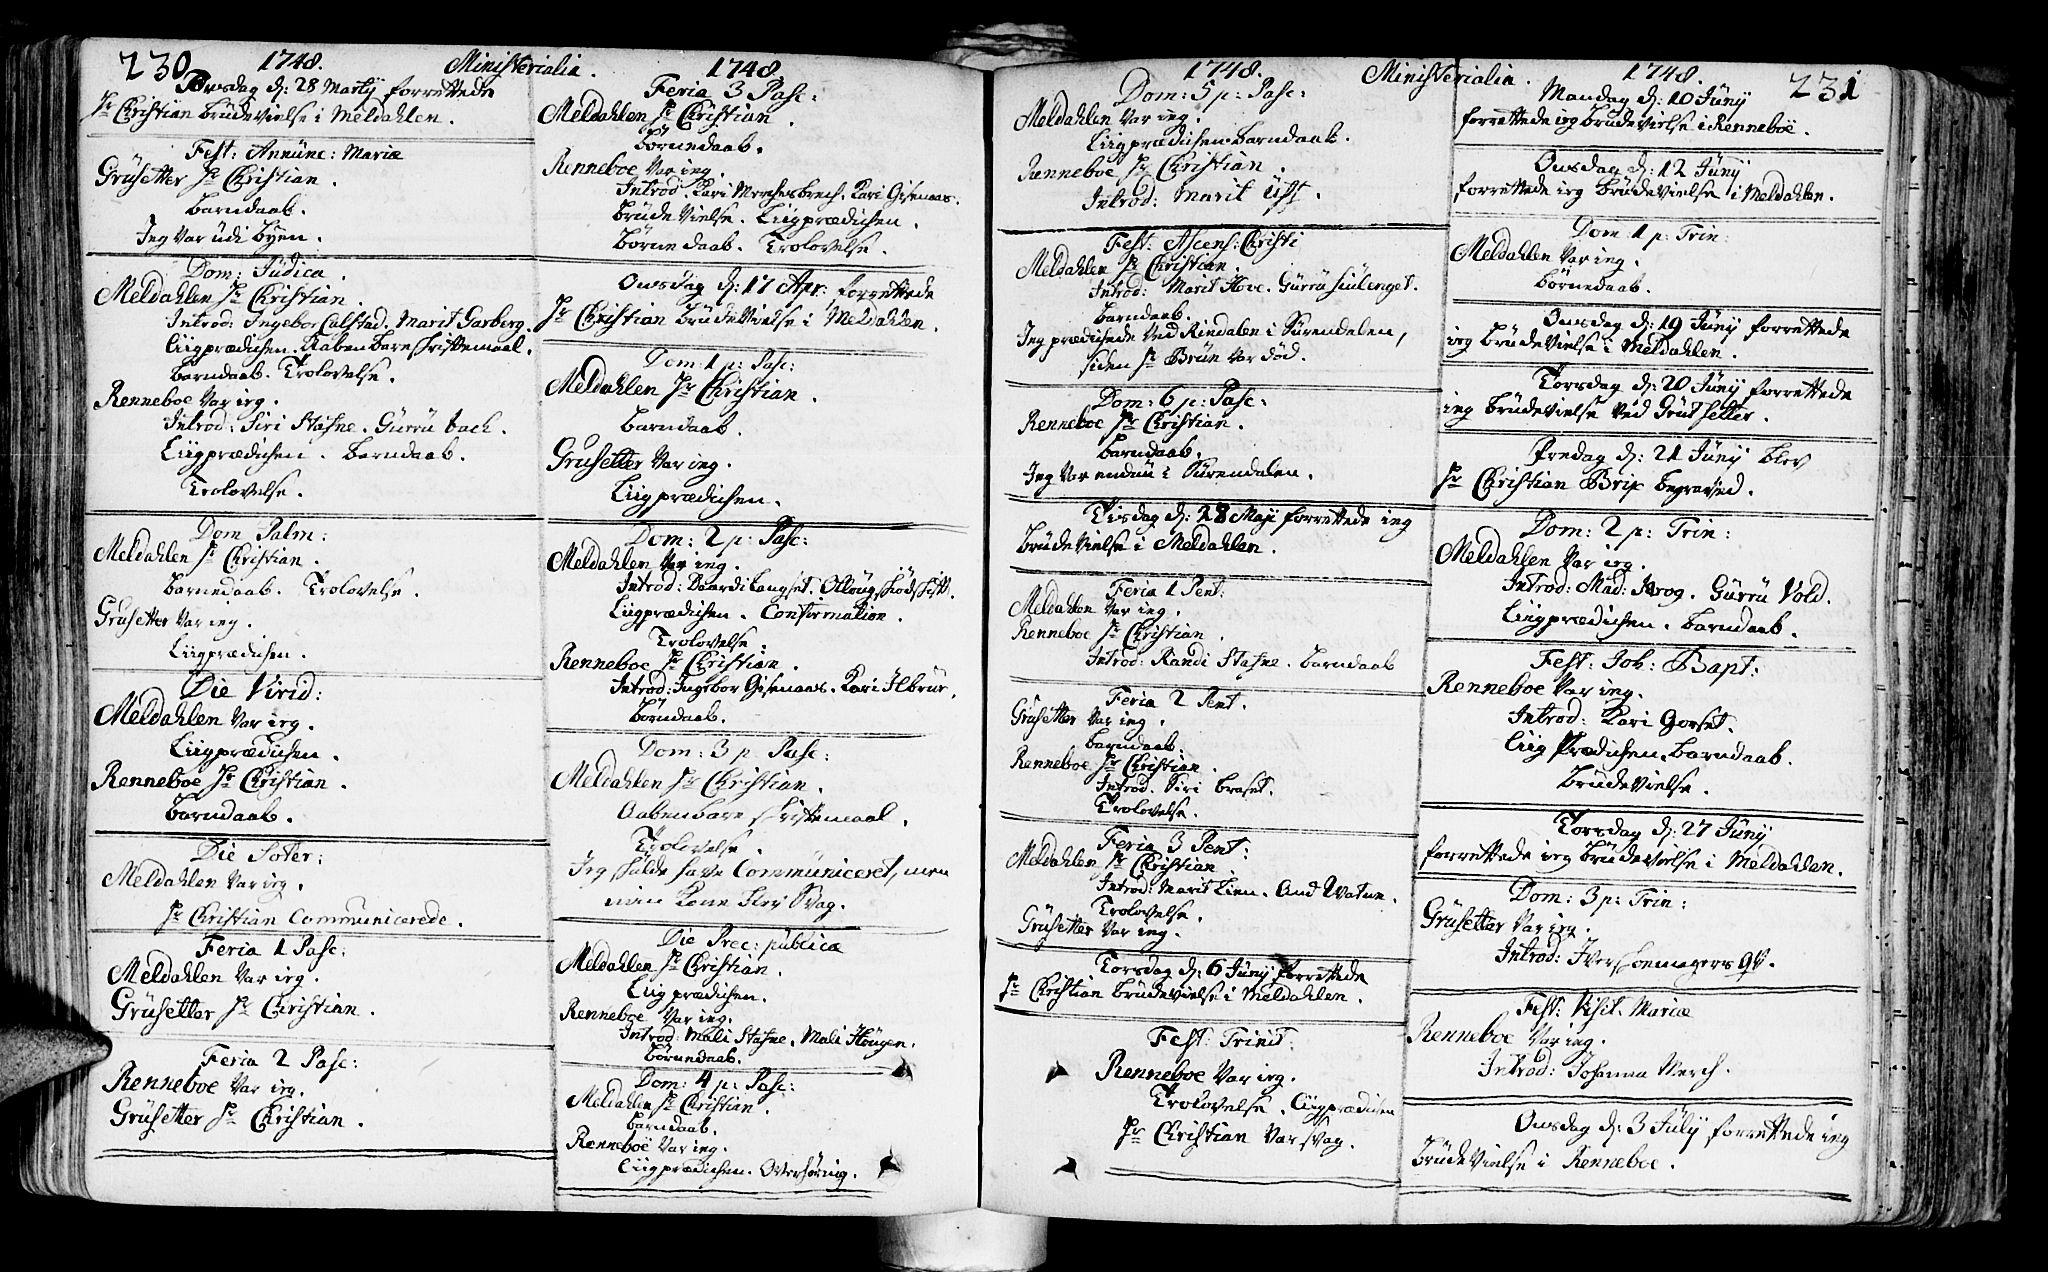 230 1748. Ministerialia. 1748.
Torsdag d: 28 Martij forrettede
Hr Christian brüdevielse i Meldahlen.
Fest: Annunc: Mariæ
Grüsetter Hr Christian.
barndaab.
Jeg var üdi byen.
Dom: Judica.
Meldahlen Hr Christian.
Introd: Ingebor Calstad. Marit Garberg.
Liigprædichen. Aabenbare skriftemaal.
barndaab. Trolovelse.
Renneboe var ieg.
Introd: Siri Stafne. Gürrü bach.
Liigprædichen. barndaab.
Trolovelse.
Dom Palm:
Meldahlen Hr Christian.
barnedaab. Trolovelse.
Grüsetter var ieg.
Liigprædichen.
Die Virid:
Meldahlen var ieg.
Liigprædichen.
Renneboe Hr Christian.
barndaab.
Die Soter:
Meldahlen var ieg.
Hr Christian Communicerede.
Feria 1 Pasc:
Meldahlen var ieg.
Grüsetter Hr Christian.
Feria 2 Pasc:
Renneboe var ieg.
Grüsetter Hr Christian.
Feria 3 Pasc:
Meldahlen Hr Christian.
börnedaab.
Renneboe var ieg.
Introd. Kari Kari Gisenaas.
brüdevielse. Liigprædichen.
börnedaab. Trolovelse.
Onsdag d: 17 Apr: forrettede
Hr Christian brüdevielse i Meldahlen.
Dom: 1 p: Pasc:
Meldahlen Hr Christian.
barndaab.
Grüsetter var ieg.
Liigprædichen.
Dom: 2 p: Pasc:
Meldahlen var ieg.
Introd: Baardi Langset. Ollöug
Liigprædichen. Confirmation.
Trolovelse.
Renneboe Hr Christian.
Introd: Ingebor Gisenaas. Kari Ilbrur.
börndaab.
Dom: 3 p: Pasc:
Meldahlen Hr Christian.
Aabenbare skriftemaal.
Trolovelse.
Jeg skülde have Communiceret, men
min Kone blev svag.
Die Prec: publicæ
Meldahlen Hr Christian.
Liigprædichen.
Renneboe var ieg.
Introd: Mali Stafne. Mali Höugen.
börnedaab.
Dom: 4 p: Pasc:
Meldahlen Hr Christian.
barndaab.
Renneboe var ieg.
Liigprædichen. Overhöring.
1748. Ministerialia. 1748. 231
Dom: 5 p: Pasc:
Meldahlen var ieg.
Liigprædichen. barndaab.
Renneboe Hr Christian.
Introd: Marit Üft.
Fest: Ascens: Christi
Meldahlen Hr Christian.
Introd: Marit Hove. Gürrü
barndaab.
Jeg prædichede ved Rindalen i Sürendalen,
siden Hr Brün var död.
Dom: 6 p: Pasc:
Renneboe Hr Christian.
barndaab.
Jeg var endnü i Sürendalen.
Tisdag d: 28 Maji forrettede ieg
brüdevielse i Meldahlen.
Feria 1 Pent:
Meldahlen var ieg.
Renneboe Hr Christian.
Introd: Randi Stafne. barndaab
Feria 2 Pent.
Grüsetter var ieg.
barndaab.
Renneboe Hr Christian.
Introd. Siri braset.
Trolovelse.
Feria 3 Pent:
Meldahlen Hr Christian
Introd: Marit Lien.
Trolovelse.
Grüsetter var ieg.
Torsdag d: 6 Jünij forrettede
Hr Christian brüdevielse i Meldahlen.
Fest: Trinit:
Renneboe var ieg.
Trolovelse. Liigprædichen
Hr Christian var svag.
Mandag d: 10 Jünij
forrettede ieg brüdevielse i Renneboe.
Onsdag d: 12 Jünij
forrettede ieg brüdevielse i Meldahlen.
Dom 1 p: Trin:
Meldahlen var ieg.
börnedaab.
Onsdag d: 19 Jünij forrettede
ieg brüdevielse i Meldahlen.
Torsdag d: 20 Jünij forrettede
ieg brüdevielse ved Grütsetter.
Fredag d: 21 Jünij blev
Hr Christian Brix begraved.
Dom: 2 p: Trin:
Meldahlen var ieg.
Introd: Mad: Krog. Gürrü Vold.
Liigprædichen. barndaab.
Fest: Joh: Bapt:
Renneboe var ieg.
Introd: Kari Gorset.
Liigprædichen. barndaab.
brüdevielse.
Torsdag d: 27 Jünij
forrettede ieg brüdevielse i Meldahlen.
Dom: 3 p: Trin:
Grüsetter var ieg.
Introd: Iver qv.
Fest: Visit. Mariæ
Renneboe var ieg.
Introd: Johanna Merch.
Onsdag d: 3 Jülij forrettede ieg
brüdevielse i Renneboe.